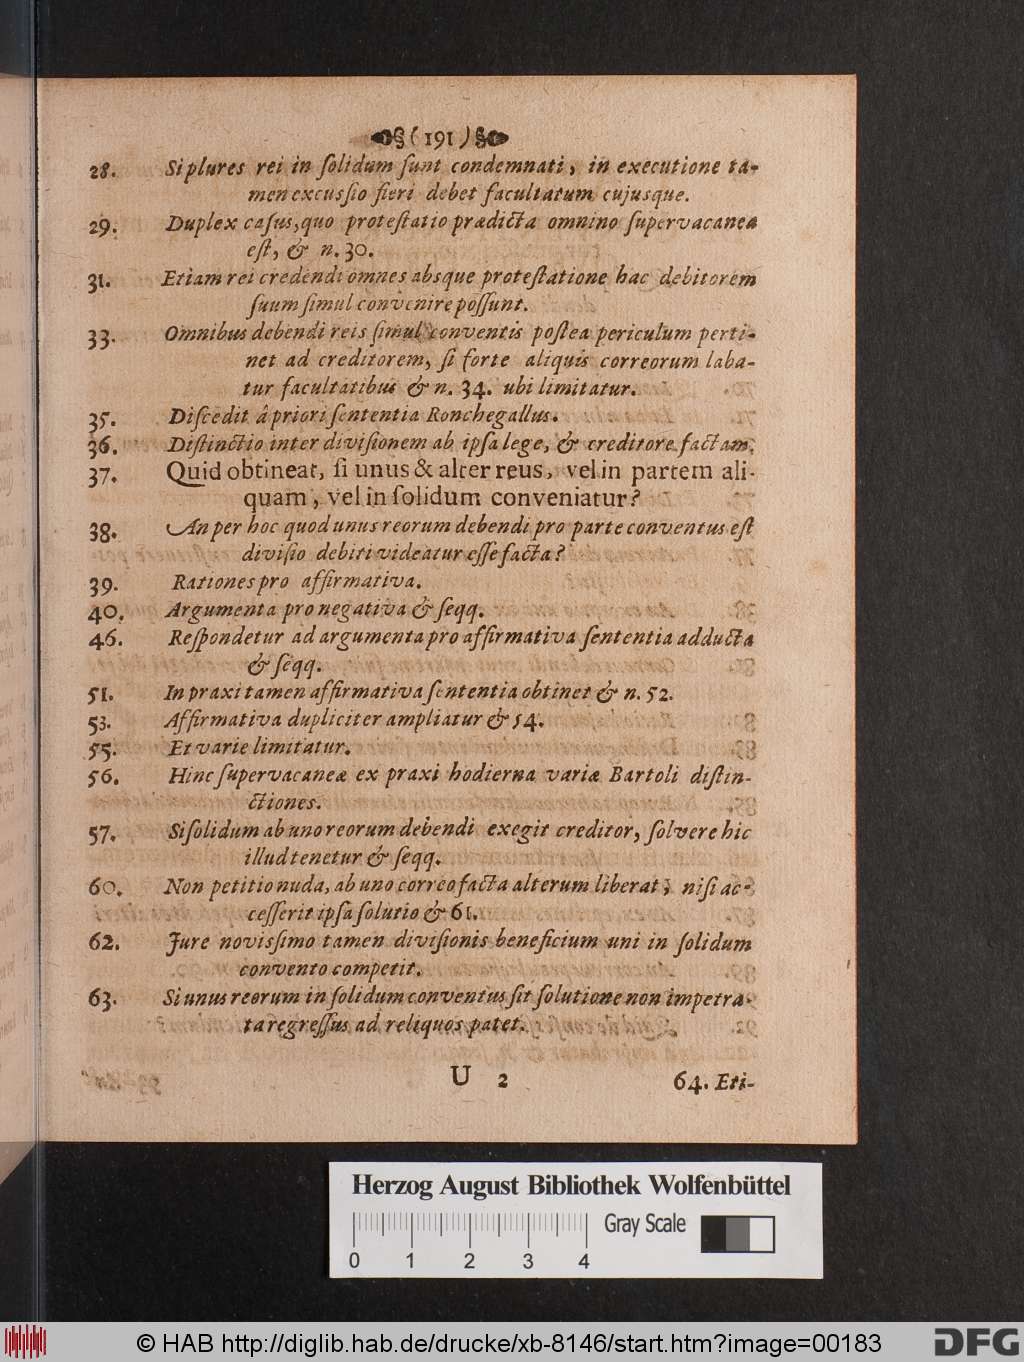 ( 191 )
28. Si plures rei in ſolidum ſunt condemnati, in executione ta-
men excuſsio fieri debet facultatum cujusque.
29. Duplex caſus, quo proteſtatio prædicta omnino ſupervacanea
eſt, & n. 30.
31. Etiam rei credendi omnes absque proteſtatione hac debitorem
ſuum ſimul convenire poſſunt.
33. Omnibus debendi reis ſimul conventis poſtea periculum perti-
net ad creditorem, ſi forte aliquis correorum laba-
tur facultatibus & n. 34. ubi limitatur.
35. Diſcedit â priori ſententia Ronchegallus.
36. Diſtinctio inter diviſionem ab ipſa lege, & creditore factam.
37. Quid obtineat, ſi unus & alter reus, vel in partem ali-
quam, vel in ſolidum conveniatur?
38. An per hoc quod unus reorum debendi pro parte conventus eſt
diviſio debiti videatur eſſe facta?
39. Rationes pro affirmativa.
40. Argumenta pro negativa & ſeqq.
46. Reſpondetur ad argumenta pro affirmativa ſententia adducta
& ſeqq.
51. In praxi tamen affirmativa ſententia obtinet & n. 52.
53. Affirmativa dupliciter ampliatur & 54.
55. Et varie limitatur.
56. Hinc ſupervacaneæ ex praxi hodierna variæ Bartoli diſtin-
ctiones.
57. Si ſolidum ab uno reorum debendi exegit creditor, ſolvere hic
illud tenetur & ſeqq.
60. Non petitio nuda, ab uno correo facta alterum liberat, niſi ac-
ceſſerit ipſa ſolutio & 61.
62. Jure noviſsimo tamen diviſionis beneficium uni in ſolidum
convento competit.
63. Si unus reorum in ſolidum conventus ſit ſolutione non impetra-
ta regreſſus ad reliquos patet.
U 2 64. Eti-
Herzog August Bibliothek Wolfenbüttel
Gray Scale
0 1 2 3 4
© HAB http://diglib.hab.de/drucke/xb-8146/start.htm?image=00183
DFG